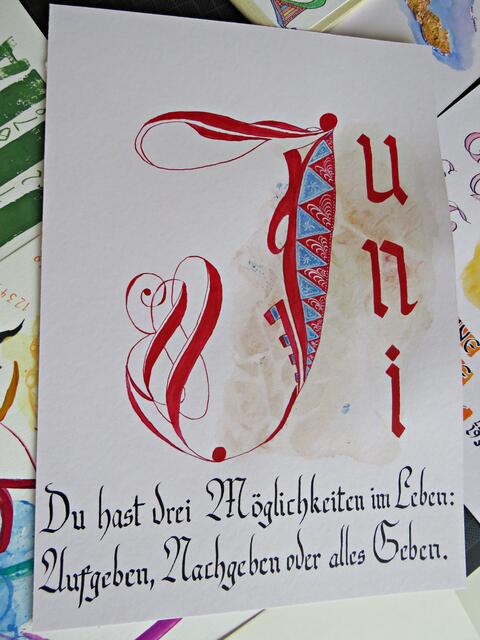 Juni
Du hast drei Möglichkeiten im Leben:
Aufgeben, Nachgeben oder alles Geben.